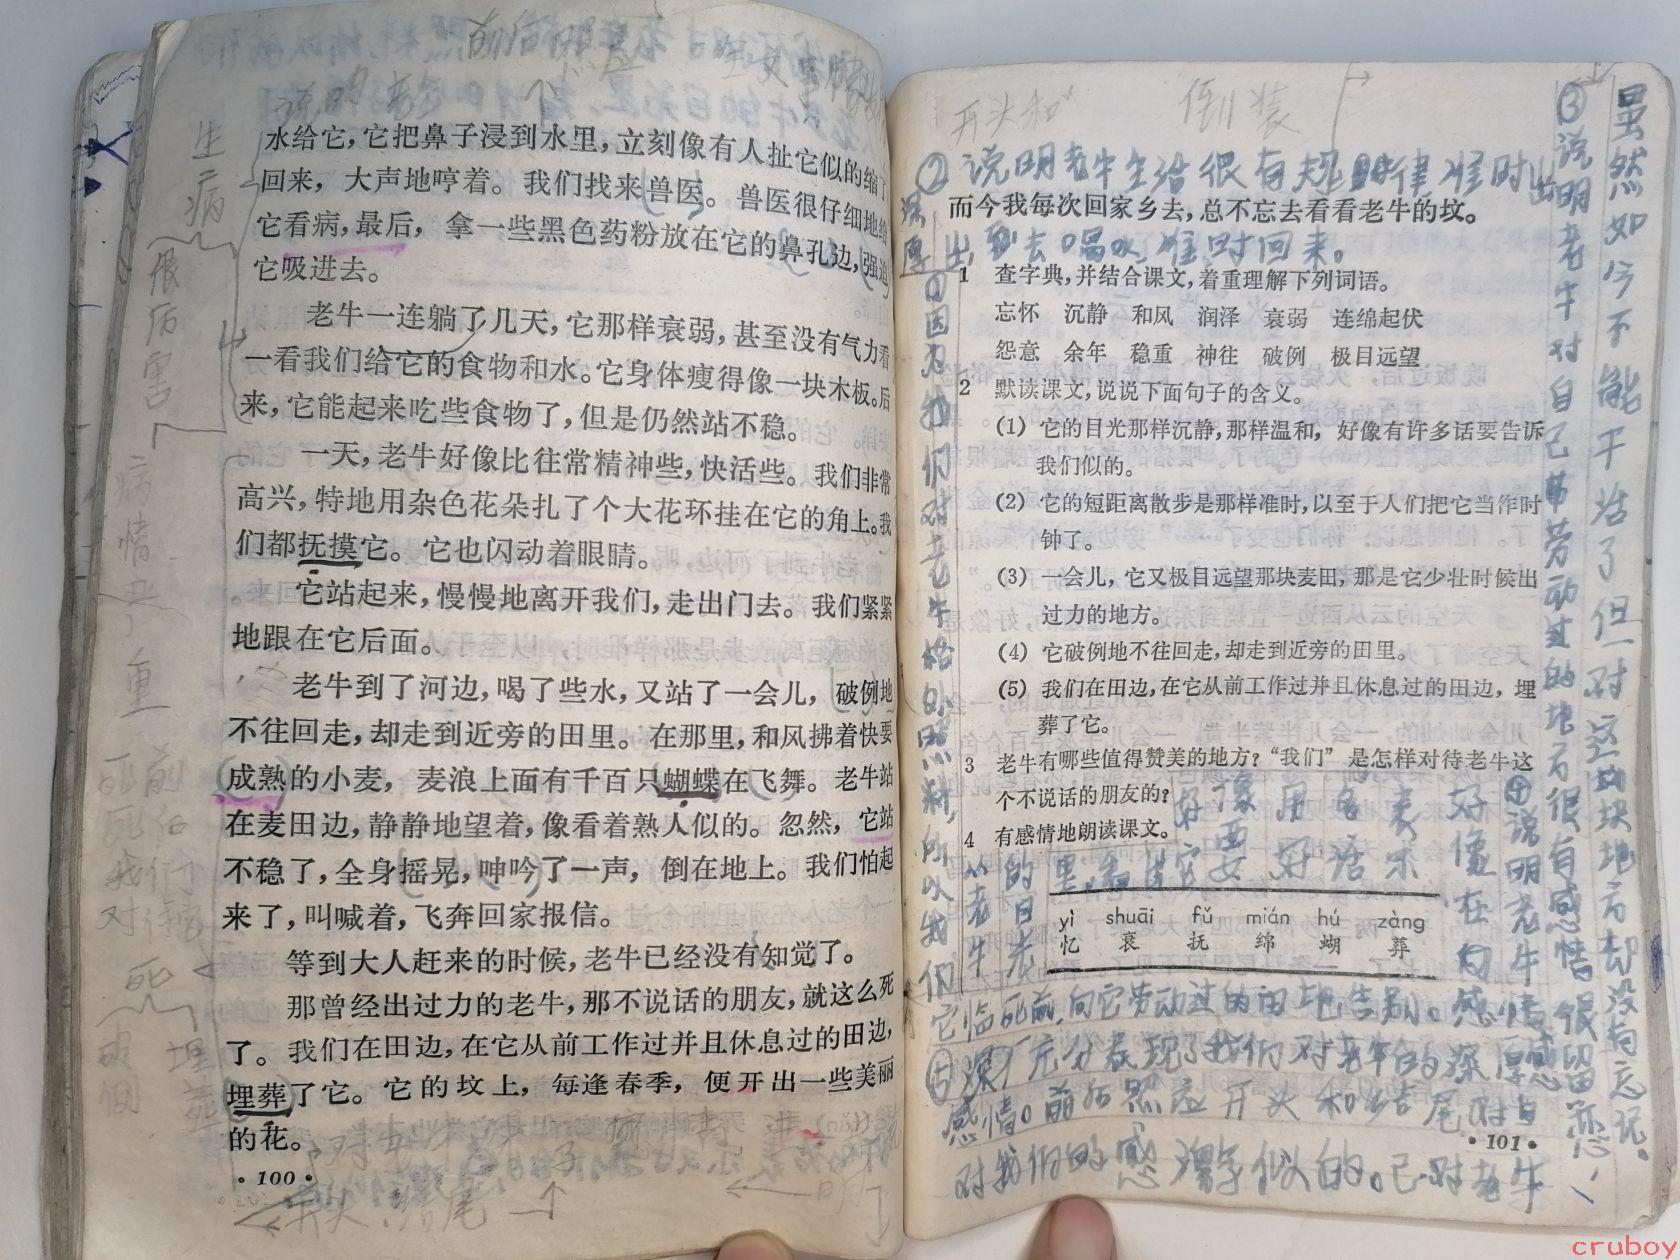 水给它，它把鼻子浸到水里，立刻像有人扯它似的缩了
回来，大声地哼着。我们找来兽医。兽医很仔细地给
它看病，最后，拿一些黑色药粉放在它的鼻孔边，强迫
它吸进去。
老牛一连躺了几天，它那样衰弱，甚至没有气力看
一看我们给它的食物和水。它身体瘦得像一块木板。后
来，它能起来吃些食物了，但是仍然站不稳。
一天，老牛好像比往常精神些，快活些。我们非常
高兴，特地用杂色花朵扎了个大花环挂在它的角上。我
们都抚摸它。它也闪动着眼睛。
它站起来，慢慢地离开我们，走出门去。我们紧紧
地跟在它后面。
老牛到了河边，喝了些水，又站了一会儿，破例地
不往回走，却走到近旁的田里。在那里，和风拂着快要
成熟的小麦，麦浪上面有千百只蝴蝶在飞舞。老牛站
在麦田边，静静地望着，像看着熟人似的。忽然，它站
不稳了，全身摇晃，呻吟了一声，倒在地上。我们怕起
来了，叫喊着，飞奔回家报信。
等到大人赶来的时候，老牛已经没有知觉了。
那曾经出过力的老牛，那不说话的朋友，就这么死
了。我们在田边，在它从前工作过并且休息过的田边，
埋葬了它。它的坟上，每逢春季，便开出一些美丽
的花。
·100·
开头 结尾
生病
很厉害
病情 重
死前
埋葬
开头和
倒装
②说明老牛生活很有规律，准时出
而今我每次回家乡去，总不忘去看看老牛的坟。
出 到去喝水，准时回来。
深厚
1 查字典，并结合课文，着重理解下列词语。
忘怀 沉静 和风 润泽 衰弱 连绵起伏
怨意 余年 稳重 神往 破例 极目远望
2 默读课文，说说下面句子的含义。
(1) 它的目光那样沉静，那样温和，好像有许多话要告诉
我们似的。
(2) 它的短距离散步是那样准时，以至于人们把它当作时
钟了。
(3) 一会儿，它又极目远望那块麦田，那是它少壮时候出
过力的地方。
(4) 它破例地不往回走，却走到近旁的田里。
(5) 我们在田边，在它从前工作过并且休息过的田边，埋
葬了它。
3 老牛有哪些值得赞美的地方？“我们”是怎样对待老牛这
个不说话的朋友的？
4 有感情地朗读课文。
yì shuāi fǔ mián hú zàng
忆 衰 抚 绵 蝴 葬
①因为我们对老牛格外照料，所以我们
从老牛
的目光
③说明老牛对自己曾劳动过的地方很有感情，很留恋，
虽然如今不能干活了但对这块地方却没有忘记。
④说明老牛
它临死前，向它劳动过的田地告别。感情
⑤ 充分表现了我们对老牛的深厚感
感情。前后照应 开头和结尾
对我们的感激 似的。 对老牛
·101·
cruboy